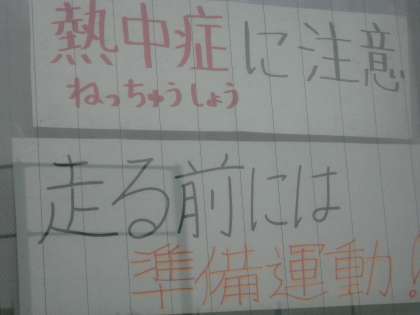 熱中症に注意
ねっちゅうしょう
走る前には
準備運動!